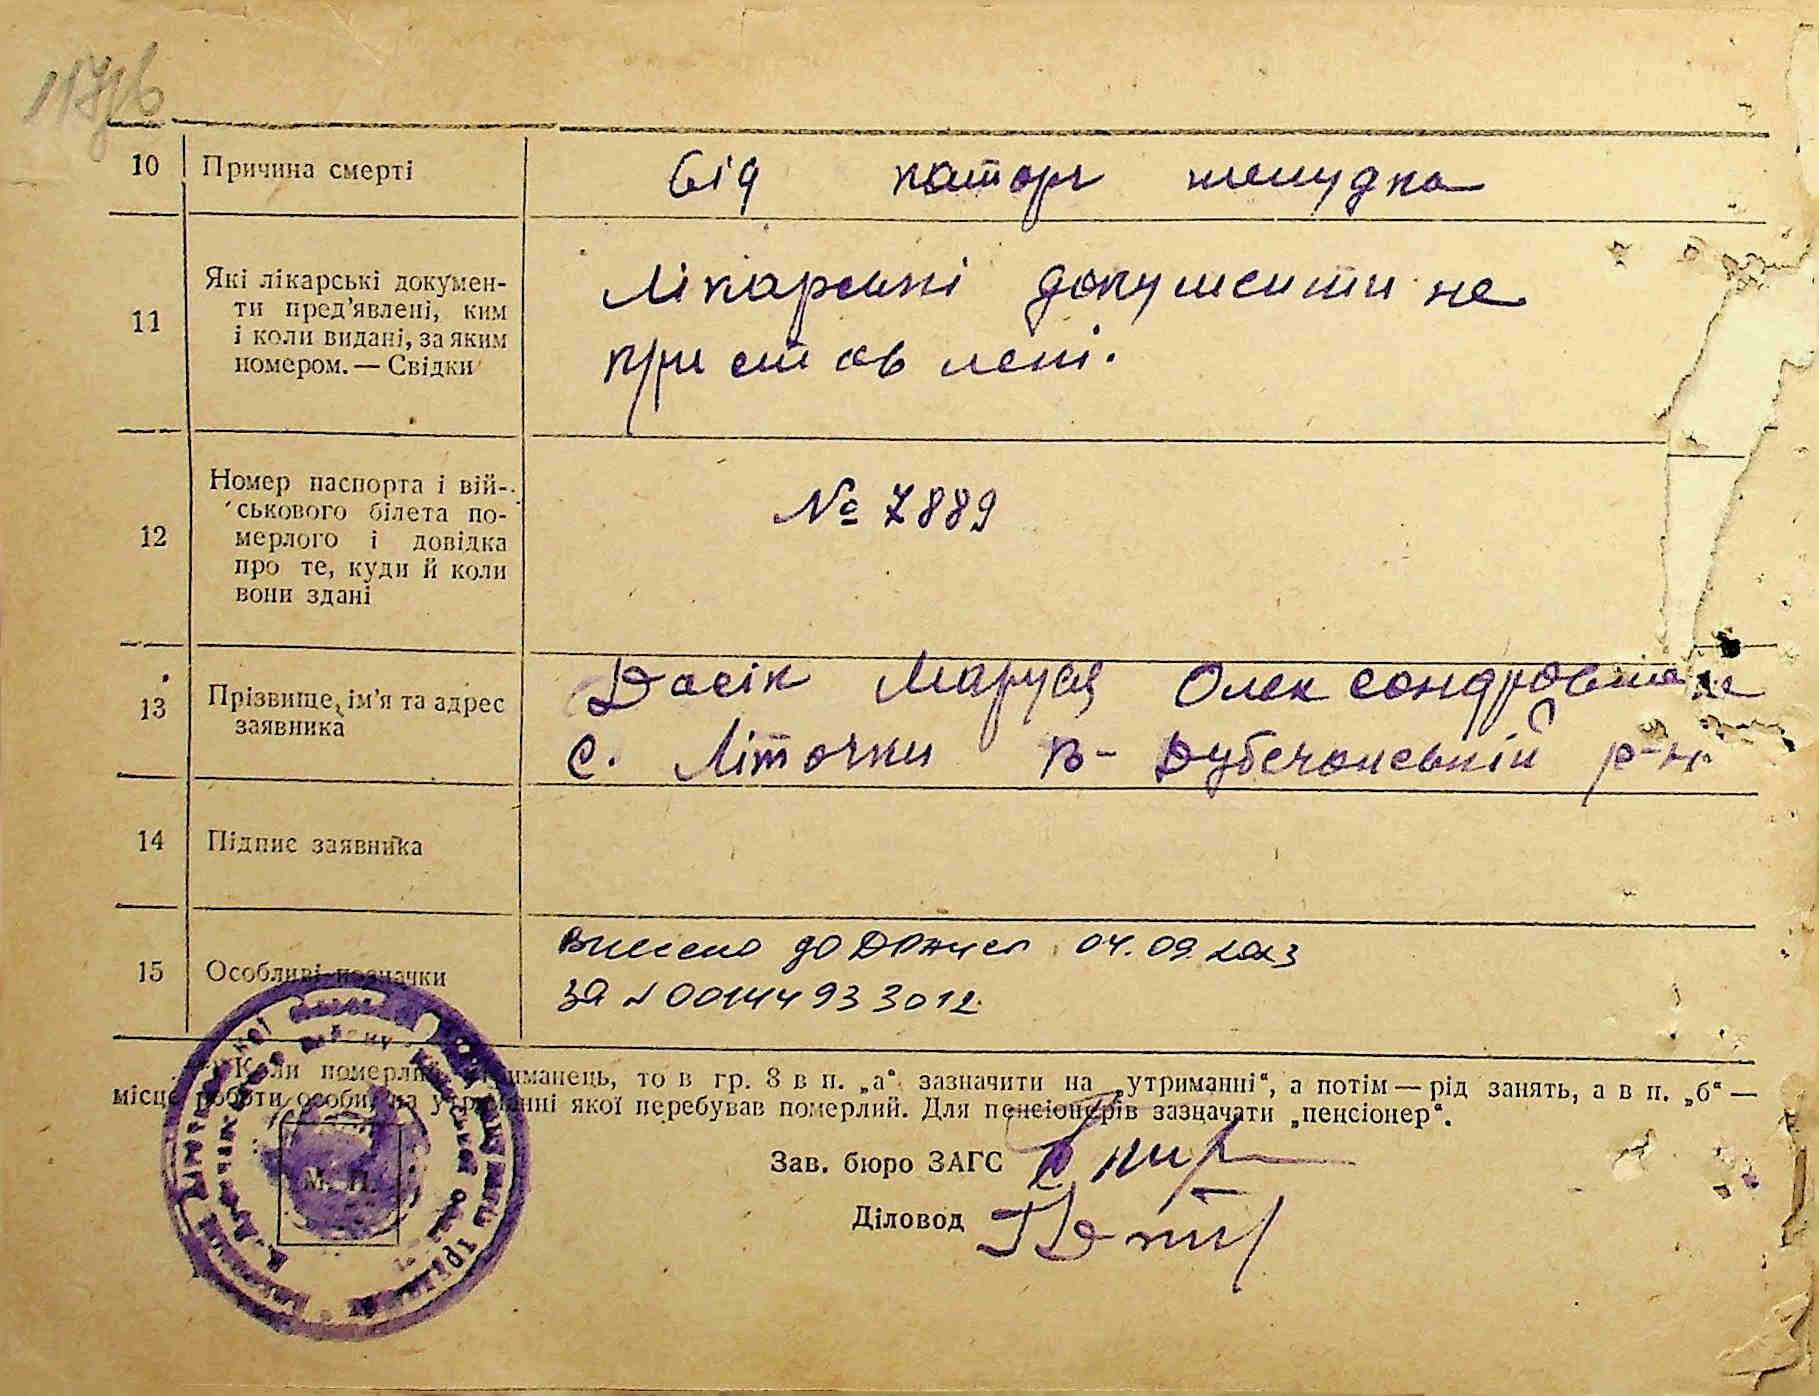 117/б
10 Причина смерті
Від катара желудка
11 Які лікарські докумен-
ти пред'явлені, ким
і коли видані, за яким
номером. — Свідки
Лікарські документи не
приставлені.
12 Номер паспорта і вій-
ськового білета по-
мерлого і довідка
про те, куди й коли
вони здані
№ 7889
13 Прізвище, ім'я та адрес
заявника
Дасік Маруся Олександровна
с. Літочки В-Дубечанській р-н
14 Підпис заявника
15 Особливі позначки
Внесено до 04.09.2023
за № 00144933012
Коли померлий утриманець, то в гр. 8 в п. „а“ зазначити на „утриманні“, а потім — рід занять, а в п. „б“ —
місце роботи особи, на утриманні якої перебував померлий. Для пенсіонерів зазначати „пенсіонер“.
Зав. бюро ЗАГС
Діловод
М. П.